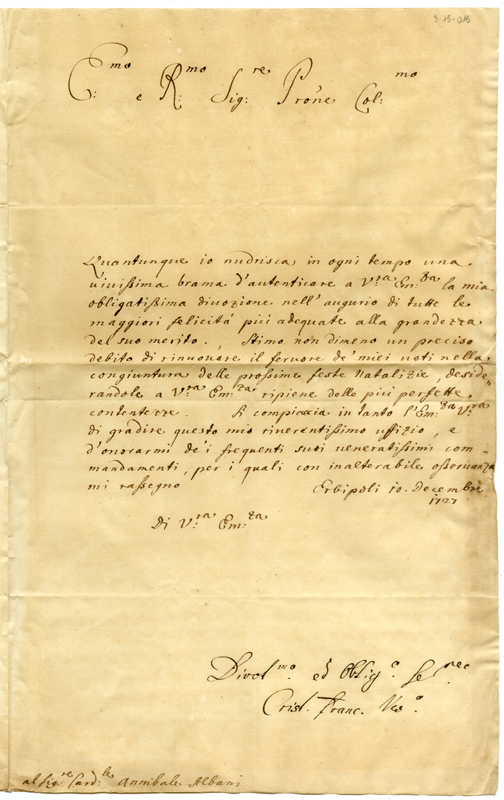 3-15-015
E:mo e R:mo Sig:re Pro'ne Col:mo
Quantunque io nudrisca in ogni tempo una
viuissima brama d'autenticare a V:ra Em:za la mia
obligatissima diuozione nell' augurio di tutte le
maggiori felicità più adequate alla grandezza
del suo merito., Stimo non dimeno un preciso
debito di rinuouare il feruore de' miei uoti nella
congiuntura delle prossime feste Natalizie, deside-
randole a V:ra Em:za ripiene delle più perfette
contentezze. Si compiaccia in tanto l'Em:za V:ra
di gradire questo mio riuerentissimo uffizio, e
d'onorarmi de'i frequenti suoi veneratissimi com-
mandamenti, per i quali con inalterabile osseruanza
mi rassegno Erbipoli 10. Decembre
1727
Di V:ra Em:za
Divot:mo ed Oblig:o Se:
Crist. Franc. Ves:o
al Sig:re Card:le Annibale Albani